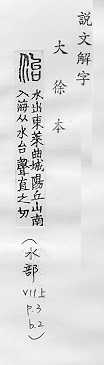 說文解字
大徐本
治
水出東萊曲城陽丘山南
入海从水台聲直之切
(水部
VII上
p.3
b.2)